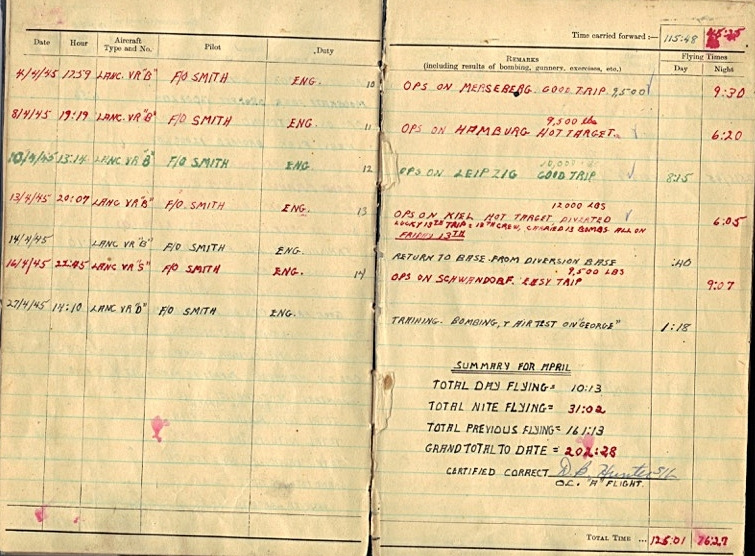 Time carried forward :— 115:48 45:25
Date Hour Aircraft Type and No. Pilot Duty REMARKS (including results of bombing, gunnery, exercises, etc.) Flying Times Day Night
4/4/45 17:59 LANC. VR"B" F/O SMITH ENG. 10 OPS ON MERSEBERG. GOOD TRIP. 9,500 ✓ 9:30
9,500 lbs
8/4/45 19:19 LANC. VR"B" F/O SMITH ENG. 11 OPS ON HAMBURG HOT TARGET. ✓ 6:20
10,000 lb
10/4/45 13:14 LANC VR"B" F/O SMITH ENG 12 OPS ON LEIPZIG GOOD TRIP ✓ 8:15
12000 LBS
13/4/45 20:07 LANC VR"B" F/O. SMITH ENG. 13 OPS ON KIEL HOT TARGET, DIVERTED ✓ 6:05
LUCKY 13TH TRIP: 13TH CREW, CARRIED 13 BOMBS ALL ON
FRIDAY 13TH
14/4/45 LANC VR"B" F/O SMITH ENG. RETURN TO BASE FROM DIVERSION BASE :40
9,500 LBS
16/4/45 LANC VR"S" F/O SMITH ENG. 14 OPS ON SCHWANDORF. EASY TRIP 9:07
27/4/45 14:10 LANC VR"D" F/O SMITH ENG. TRAINING. BOMBING, + AIR TEST ON "GEORGE" 1:18
SUMMARY FOR APRIL
TOTAL DAY FLYING= 10:13
TOTAL NITE FLYING= 31:02
TOTAL PREVIOUS FLYING= 161:13
GRAND TOTAL TO DATE = 202:28
CERTIFIED CORRECT D.B. Hunter S/L
O.C. "A" FLIGHT.
TOTAL TIME ... 126:01 76:27